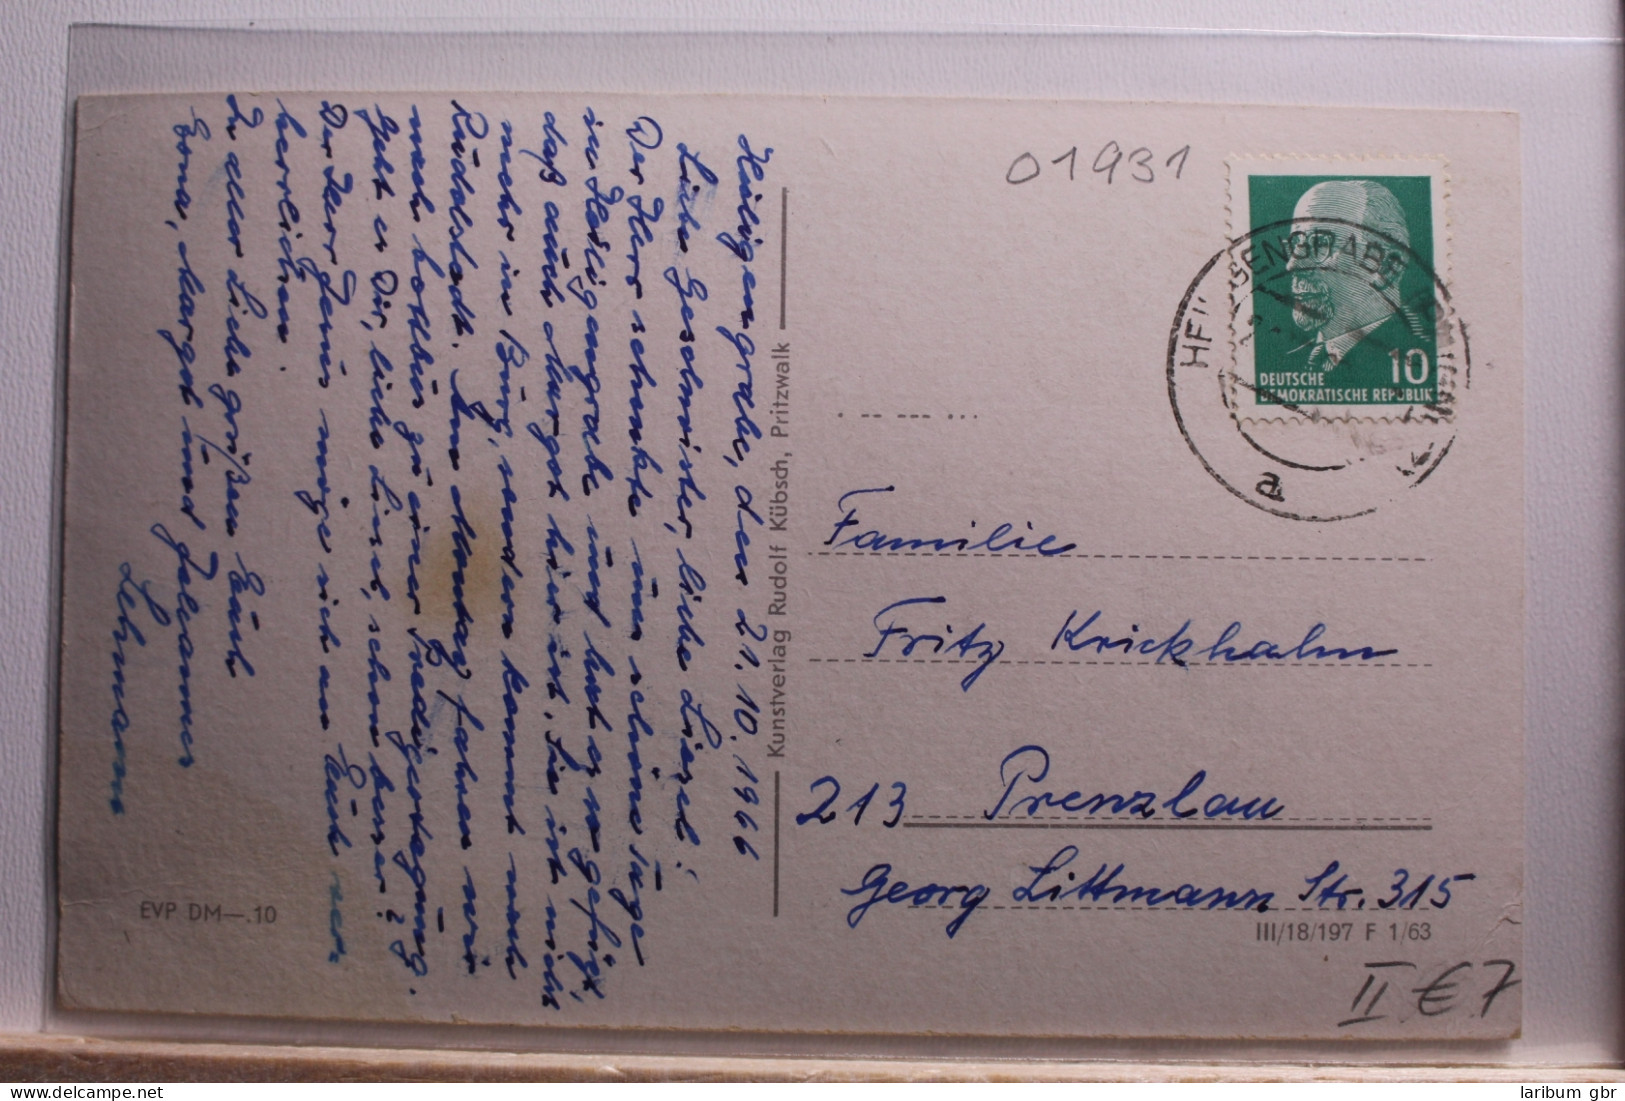 Heiligengrabe, den 21.10.1966
Liebe Geschwister, liebe Liesel!
Der Herr schenkte uns schöne Tage
in Heiligengrabe und hat es so gefügt,
daß auch Margot hier ist. Sie ist nicht
mehr in Burg, sondern kommt nach
Rudolstadt. Am Montag fahren wir
nach Kottbus zu einer Predigertagung.
Geht es Dir, liebe Liesel, schon besser?
Der Herr Jesus möge sich an Euch ver-
herrlichen.
In aller Liebe grüßen Euch
Erna, Margot und Johannes
Lehmann
EVP DM—.10
Kunstverlag Rudolf Kübsch, Pritzwalk
01931
DEUTSCHE
DEMOKRATISCHE REPUBLIK
10
a
Familie
Fritz Krickhahn
213 Prenzlau
Georg Littmann Str. 315
III/18/197 F 1/63
II € 7
www.delcampe.net
laribum gbr